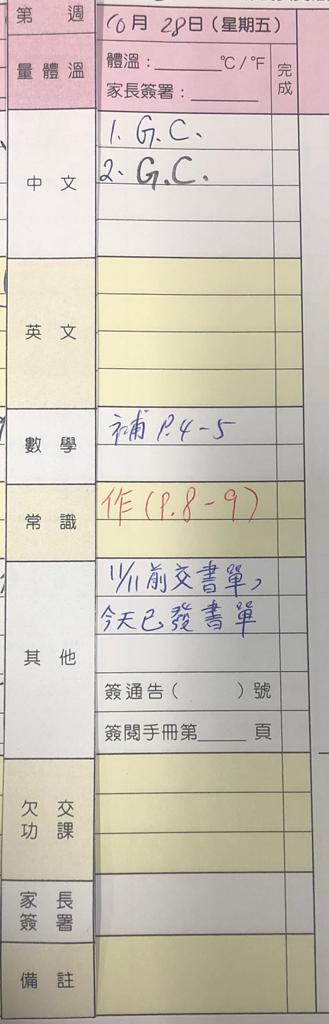 第 週
10月28日(星期五)
量體溫
體溫：______°C/°F
家長簽署：______
完成
中文
1. G.C.
2. G.C.
英文
數學
補 P.4-5
常識
作(P.8-9)
其他
11/11前交書單，
今天已發書單
簽通告(　　)號
簽閱手冊第____頁
欠交
功課
家長
簽署
備註